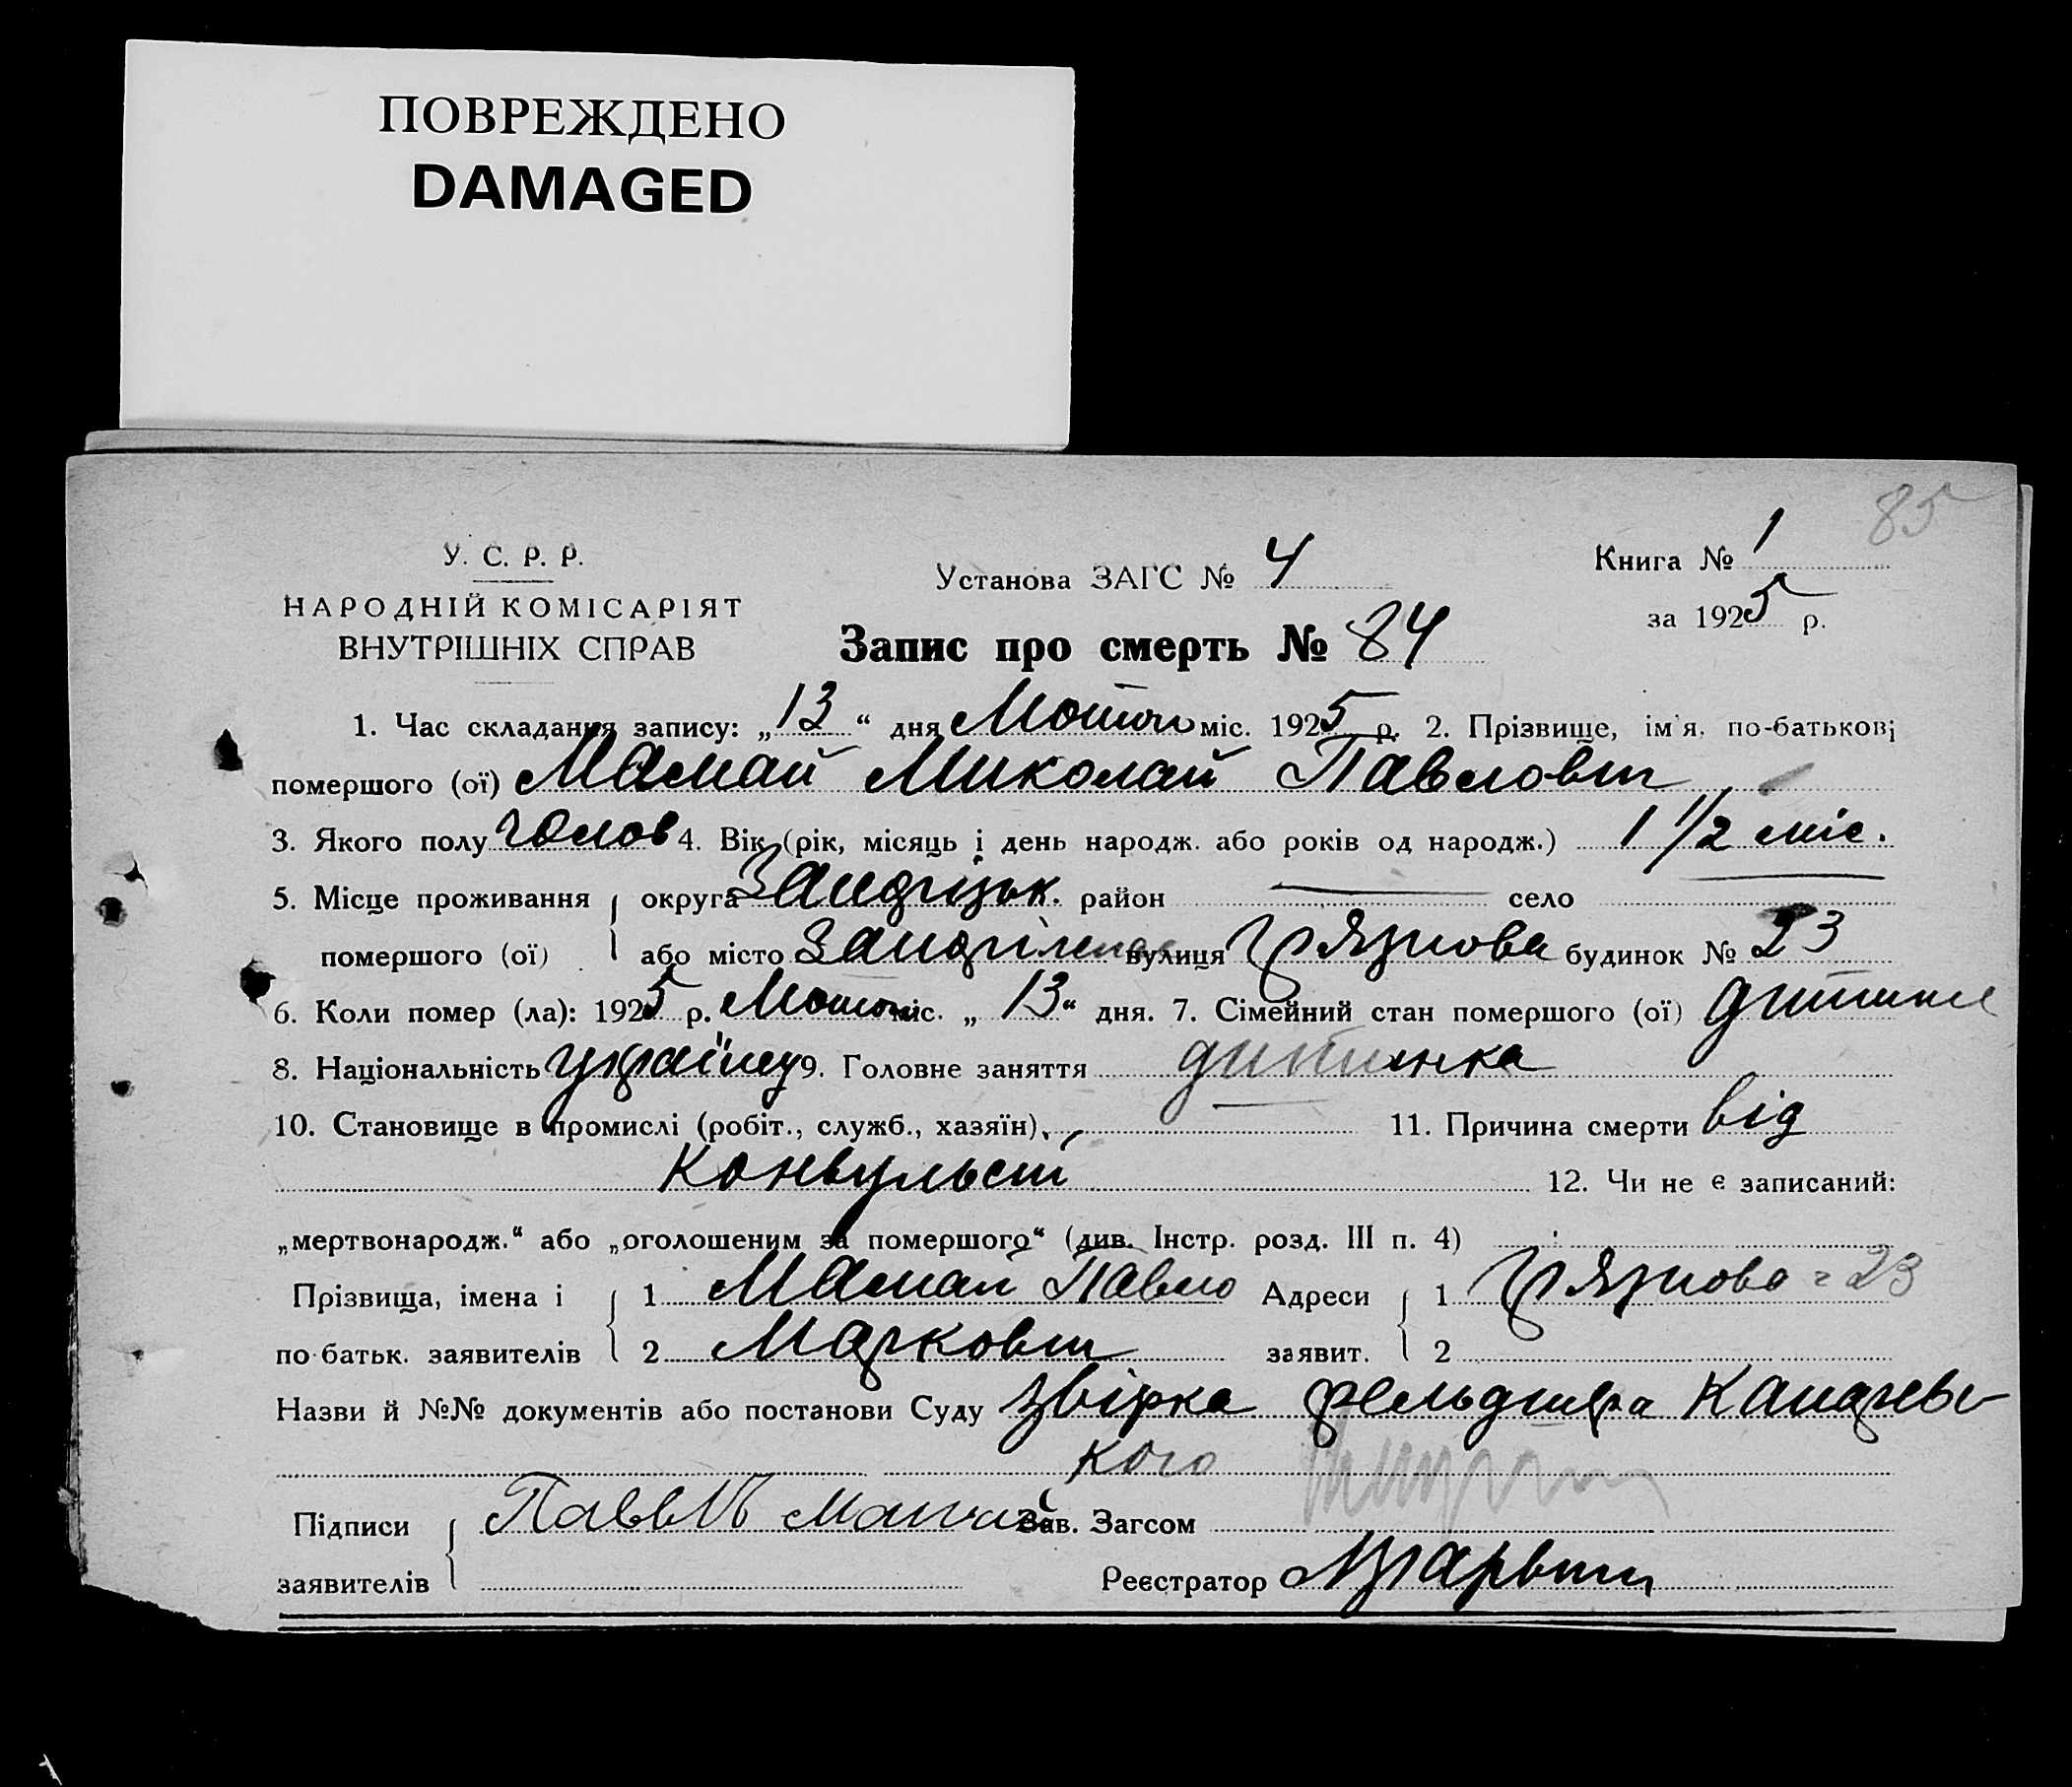 ПОВРЕЖДЕНО
DAMAGED
85
У. С. Р. Р.
НАРОДНІЙ КОМІСАРІЯТ
ВНУТРІШНІХ СПРАВ
Установа ЗАГС № 4
Книга № 1
за 1925 р.
Запис про смерть № 84
1. Час складання запису: „13“ дня міс. 1925 р. 2. Прізвище, ім'я, по-батькові
помершого (ої) Мамай Миколай Павлович
3. Якого полу чолов 4. Вік (рік, місяць і день народж. або років од народж.) 1 1/2 міс.
5. Місце проживання округа район село
помершого (ої) або місто вулиця Грязнова будинок № 23
6. Коли помер (ла): 1925 р. міс. „13“ дня. 7. Сімейний стан помершого (ої) дитина
8. Національність україн 9. Головне заняття дитинка
10. Становище в промислі (робіт., служб., хазяїн), 11. Причина смерти від
конвульсій 12. Чи не є записаний:
„мертвонародж.“ або „оголошеним за помершого“ (див. Інстр. розд. III п. 4)
Прізвища, імена і 1 Мамай Павло Адреси 1 Грязнова 23
по батьк. заявителів 2 Маркович заявит. 2
Назви й №№ документів або постанови Суду фельдшера
кого
Підписи Зав. Загсом
заявителів Реєстратор